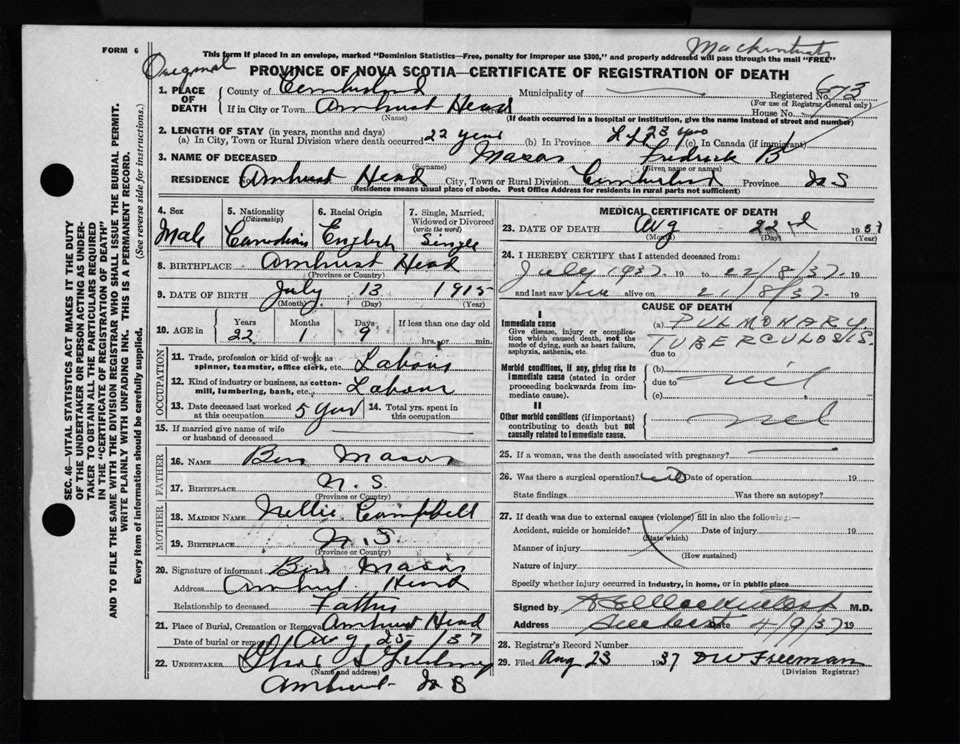 FORM 6
Original
Mackintosh
This form if placed in an envelope, marked "Dominion Statistics—Free, penalty for improper use $300," and properly addressed will pass through the mail "FREE"
PROVINCE OF NOVA SCOTIA—CERTIFICATE OF REGISTRATION OF DEATH
SEC. 46—VITAL STATISTICS ACT MAKES IT THE DUTY
OF THE UNDERTAKER OR PERSON ACTING AS UNDER-
TAKER TO OBTAIN ALL THE PARTICULARS REQUIRED
IN THE "CERTIFICATE OF REGISTRATION OF DEATH"
AND TO FILE THE SAME WITH THE DIVISION REGISTRAR WHO SHALL ISSUE THE BURIAL PERMIT.
WRITE PLAINLY WITH UNFADING INK. THIS IS A PERMANENT RECORD.
Every item of information should be carefully supplied. (See reverse side for instructions.)
1. PLACE OF DEATH County of Cumberland Municipality of Registered No. 673
(For use of Registrar General only)
If in City or Town Amherst Head House No.
(Name) (If death occurred in a hospital or institution, give the name instead of street and number)
2. LENGTH OF STAY (in years, months and days)
(a) In City, Town or Rural Division where death occurred 22 years (b) In Province (c) In Canada (if immigrant)
3. NAME OF DECEASED Mason Fredrick B
(Surname) (Given name or names)
RESIDENCE No. Amherst Head City, Town or Rural Division Cumberland Province N S
(Residence means usual place of abode. Post Office Address for residents in rural parts not sufficient)
4. Sex Male
5. Nationality (Citizenship) Canadian
6. Racial Origin English
7. Single, Married, Widowed or Divorced (write the word) Single
8. BIRTHPLACE Amherst Head
(Province or Country)
9. DATE OF BIRTH July 13 1915
(Month) (Day) (Year)
10. AGE in Years Months Days If less than one day old
22 1 9 hrs. or min.
OCCUPATION
11. Trade, profession or kind of work as spinner, teamster, office clerk, etc. Labour
12. Kind of industry or business, as cotton-mill, lumbering, bank, etc. Labour
13. Date deceased last worked at this occupation 5 year 14. Total yrs. spent in this occupation
15. If married give name of wife or husband of deceased
FATHER
16. NAME Ben Mason
17. BIRTHPLACE N. S.
(Province or Country)
MOTHER
18. MAIDEN NAME Nellie Campbell
19. BIRTHPLACE N. S.
(Province or Country)
20. Signature of informant Ben Mason
Address Amherst Head
Relationship to deceased Father
21. Place of Burial, Cremation or Removal Amherst Head
Date of burial or removal Aug 25 /37
22. UNDERTAKER
(Name and address)
Amherst N S
MEDICAL CERTIFICATE OF DEATH
23. DATE OF DEATH Aug 22nd 1937
(Month) (Day) (Year)
24. I HEREBY CERTIFY that I attended deceased from:
July 1937 19 to 22/8/37 19
and last saw alive on 21/8/37 19
CAUSE OF DEATH
I
Immediate cause (a) PULMONARY
Give disease, injury or complica- TUBERCULOSIS.
tion which caused death, not the
mode of dying, such as heart failure,
asphyxia, asthenia, etc. due to
Morbid conditions, if any, giving rise to (b)
immediate cause (stated in order due to nil
proceeding backwards from im-
mediate cause). (c)
II
Other morbid conditions (if important) nil
contributing to death but not
causally related to immediate cause.
25. If a woman, was the death associated with pregnancy?
26. Was there a surgical operation? no Date of operation 19
State findings Was there an autopsy?
27. If death was due to external causes (violence) fill in also the following:—
Accident, suicide or homicide? Date of injury 19
(State which)
Manner of injury
(How sustained)
Nature of injury
Specify whether injury occurred in industry, in home, or in public place
Signed by M.D.
Address Amherst Date 4/9/37 19
28. Registrar's Record Number
29. Filed Aug 23 1937 DW Freeman
(Division Registrar)